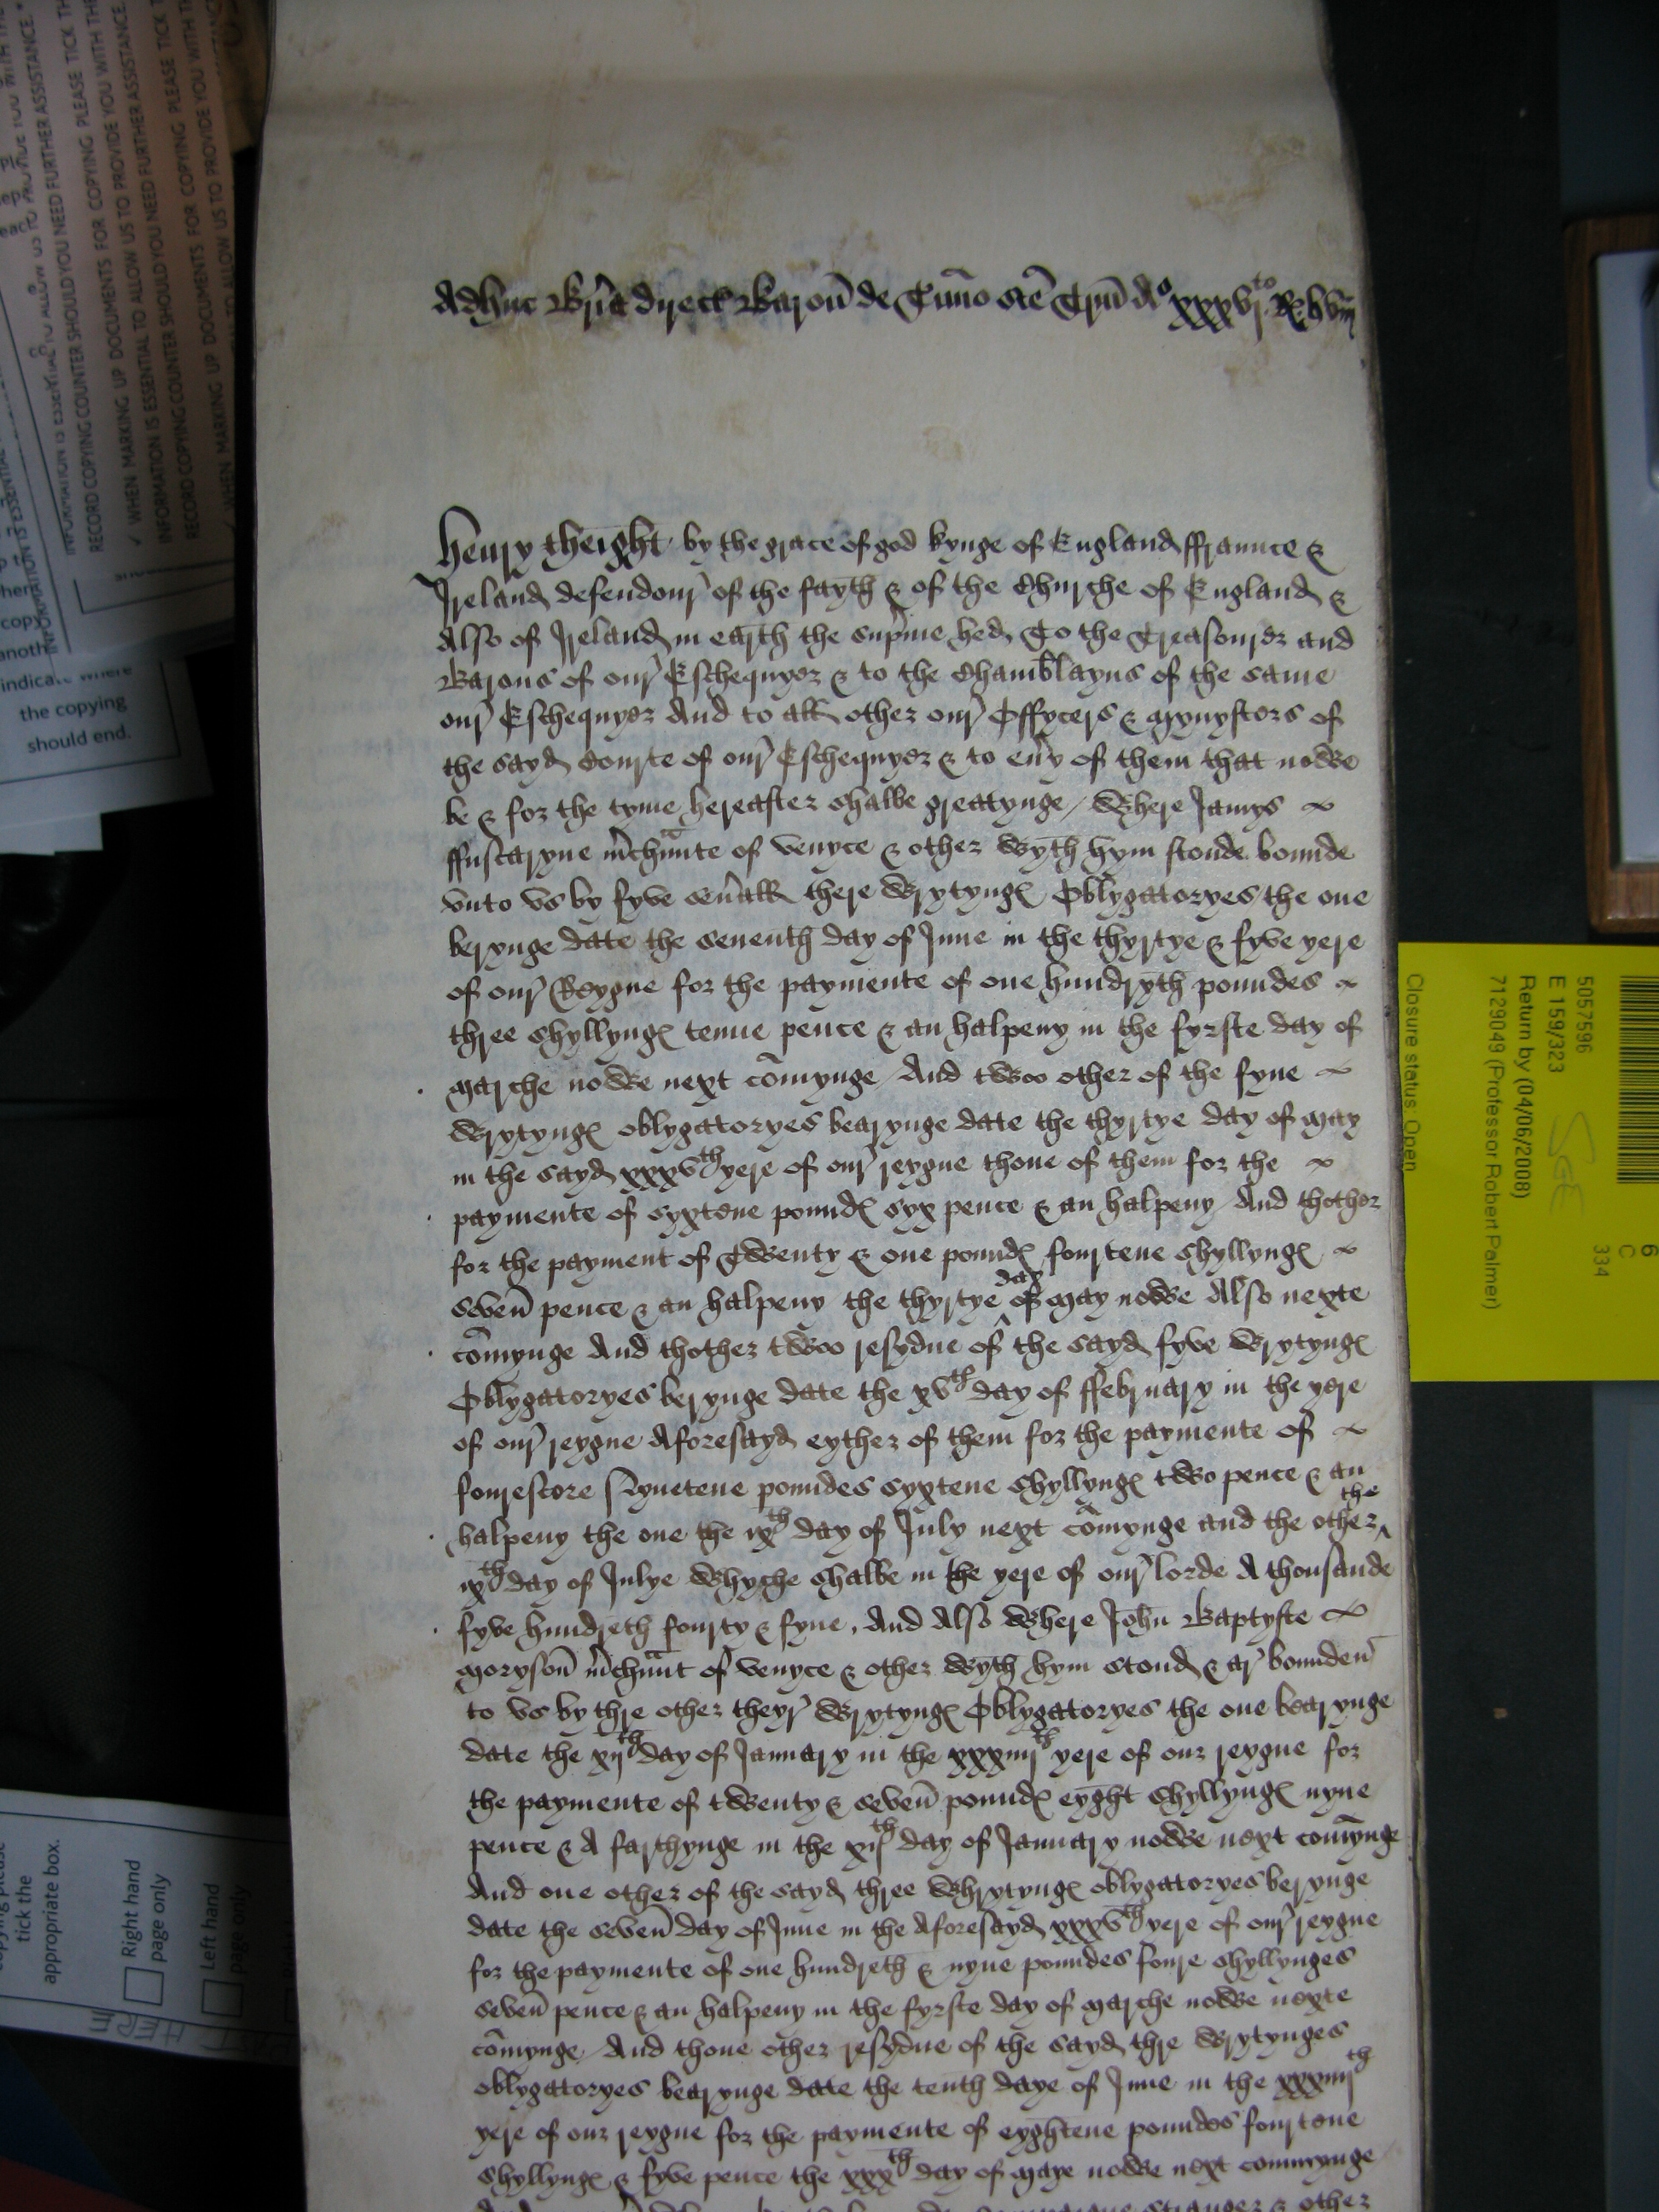 Adhuc Bria direct Baron de Timo sce Trin Ao xxxvjto R H viij
Henry theight by the grace of god kynge of England ffraunce &
Ireland defendour of the fayth & of the Churche of England &
Also of Ireland in earth the supme hed To the Treasourer and
Barons of our Eschequyer & to the Chamblayns of the same
our Eschequyer And to all other our Offycers & mynysters of
the sayd Courte of our Eschequyer & to euy of them that nowe
be & for the tyme hereafter shalbe greatynge / Where Jamys
ffuscaryne mchaunte of venyce & other wyth hym stonde bounde
vnto vs by fyve seuall there wrytynges Oblygatoryes the one
berynge date the seuenth day of June in the thyrtye & fyve yere
of our Reygne for the paymente of one hundryth poundes
three shyllynges tenne pence & an halpeny in the fyrste day of
marche nowe next comynge / And twoo other of the fyue
wrytynges oblygatoryes bearynge date the thyrtye day of may
in the sayd xxxvth yere of our reygne thone of them for the
paymente of syxtene poundes syx pence & an halpeny And thother
for the payment of Twenty & one poundes fourtene shyllynges
seven pence & an halpeny the thyrtye day of may nowe Also nexte
comynge And thother twoo resydue of the sayd fyve wrytynges
Oblygatoryes berynge date the xvth day of ffebruary in the yere
of our reygne Aforesayd eyther of them for the paymente of
fourescore Nynetene poundes syxtene shyllynges two pence & an
halpeny the one the ixth day of July next comynge and the other the
ixth day of Julye whyche shalbe in the yere of our lorde A thousande
fyve hundreth fourty & fyue, And Also where John Baptyste
moryson mchaunt of venyce & other wyth hym stond & ar bounden
to vs by thre other theyr wrytynges Oblygatoryes the one bearynge
date the xijth day of January in the xxxiiijth yere of our reygne for
the paymente of twenty & seven poundes eyght shyllynges nyne
pence & A farthynge in the xijth day of January nowe next comynge
And one other of the sayd three whrytynges oblygatoryes berynge
date the seven day of June in the Aforesayd xxxvth yere of our reygne
for the paymente of one hundreth & nyne poundes foure shyllynges
seven pence & an halpeny in the fyrste day of marche nowe nexte
comynge / And thone other resydue of the sayd thre wrytynges
oblygatoryes bearynge date the tenth daye of June in the xxxiiijth
yere of our reygne for the paymente of eyghtene poundes fourtene
shyllynges & fyve pence the xxxth day of maye nowe next commynge
stranger & other
5057596
E 159/323
SGE
Return by (04/06/2008)
7129049 (Professor Robert Palmer)
Closure status Open
6
C
334
RECORD COPYING COUNTER SHOULD YOU NEED FURTHER ASSISTANCE.
✓ WHEN MARKING UP DOCUMENTS FOR COPYING PLEASE TICK T
INFORMATION IS ESSENTIAL TO ALLOW US TO PROVIDE YOU WITH TH
RECORD COPYING COUNTER SHOULD YOU NEED FURTHER ASSISTANCE.
✓ WHEN MARKING UP DOCUMENTS FOR COPYING PLEASE TICK
INFORMATION IS ESSENTIAL TO ALLOW US TO PROVIDE YOU WITH TH
indicate where
the copying
should end.
tick the
appropriate box.
Right hand
page only
Left hand
page only
HERE